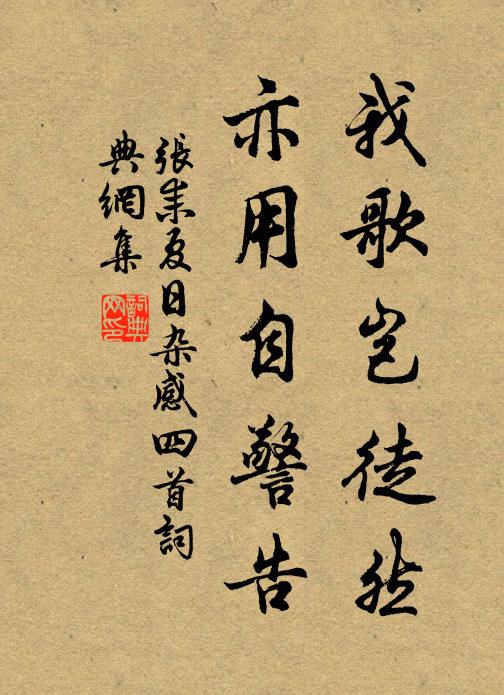 我歌岂徒然
亦用自警告
張耒夏日杂感四首詞
典網集
詞典网印